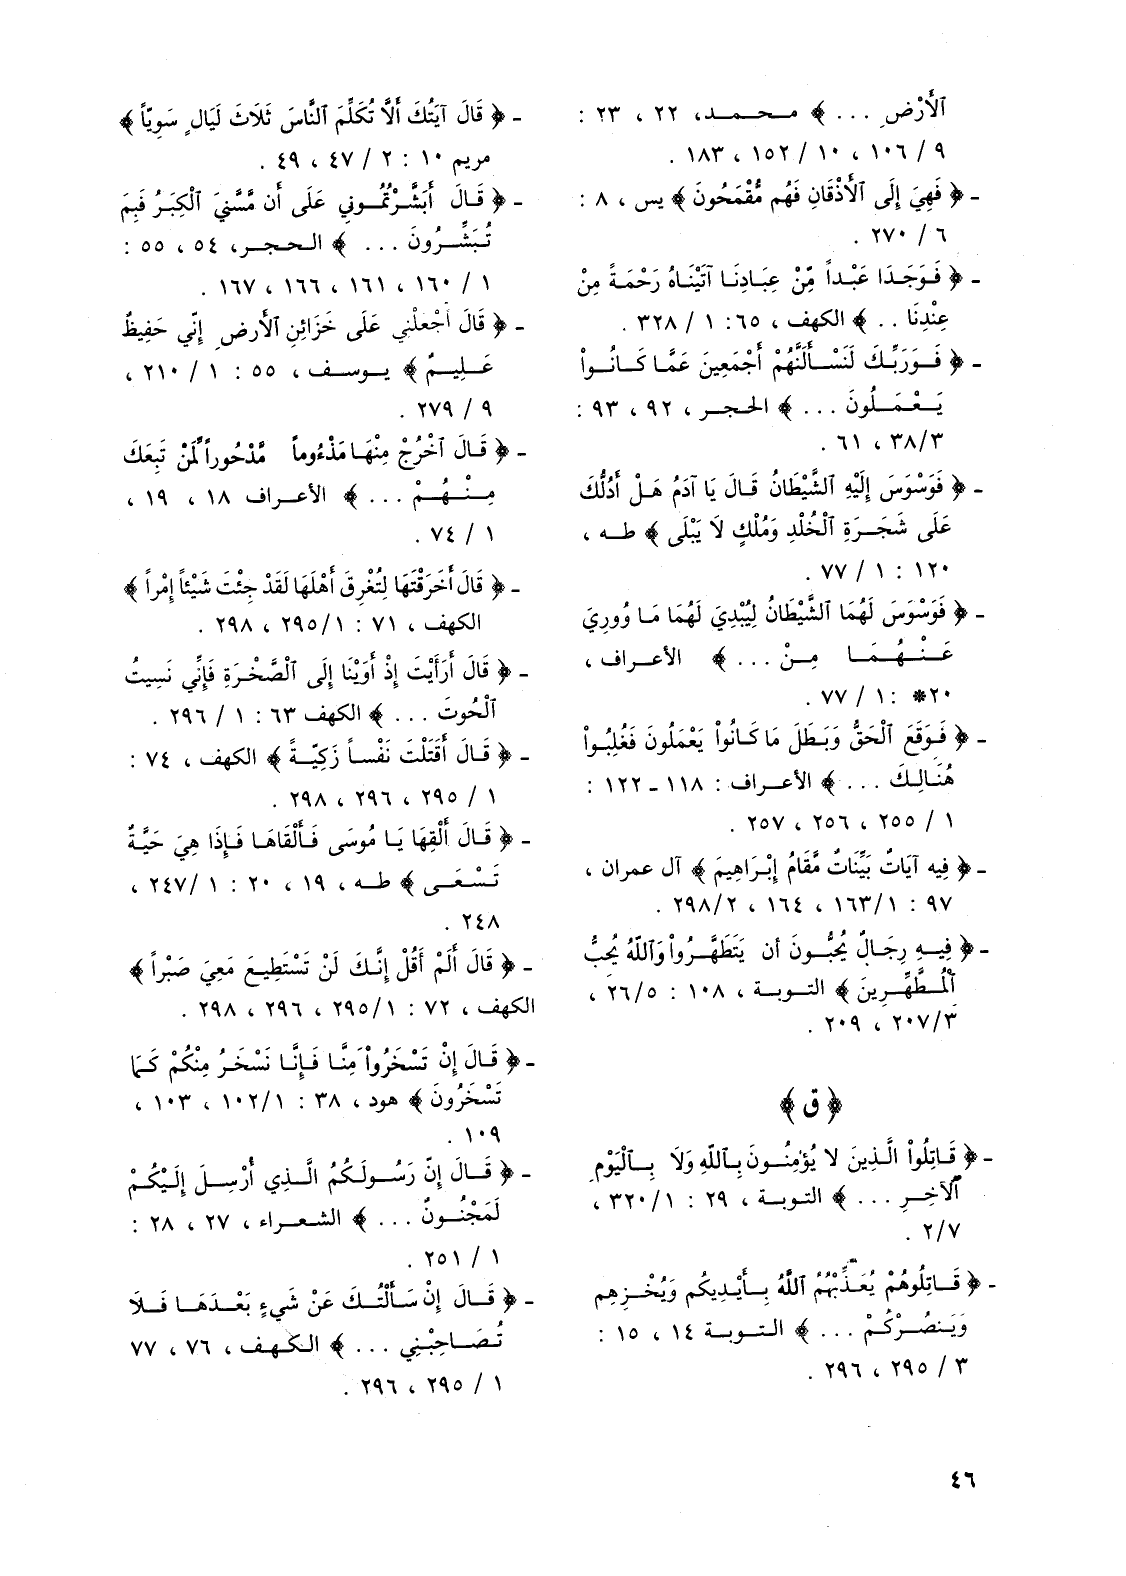 ٱلأَرْضِ ... ﴾ محمد، ٢٢ ، ٢٣ :
٩ / ١٠٦ ، ١٠ / ١٥٢ ، ١٨٣ .
- ﴿ فَهِيَ إِلَى ٱلأَذْقَانِ فَهُم مُّقْمَحُونَ ﴾ يس ، ٨ :
٦ / ٢٧٠ .
- ﴿ فَوَجَدَا عَبْداً مِّنْ عِبَادِنَا آتَيْنَاهُ رَحْمَةً مِنْ
عِنْدِنَا .. ﴾ الكهف ، ٦٥: ١ / ٣٢٨ .
- ﴿ فَوَرَبِّكَ لَنَسْأَلَنَّهُمْ أَجْمَعِينَ عَمَّا كَانُواْ
يَعْمَلُونَ ... ﴾ الحجر ، ٩٢ ، ٩٣ :
٣٨/٣ ، ٦١ .
- ﴿ فَوَسْوَسَ إِلَيْهِ ٱلشَّيْطَانُ قَالَ يَا آدَمُ هَلْ أَدُلُّكَ
عَلَى شَجَرَةِ ٱلْخُلْدِ وَمُلْكٍ لاَ يَبْلَى ﴾ طه ،
١٢٠ : ١ / ٧٧ .
- ﴿ فَوَسْوَسَ لَهُمَا ٱلشَّيْطَانُ لِيُبْدِيَ لَهُمَا مَا وُورِيَ
عَنْهُمَا مِنْ ... ﴾ الأعراف ،
٢٠* : ١ / ٧٧ .
- ﴿ فَوَقَعَ ٱلْحَقُّ وَبَطَلَ مَا كَانُواْ يَعْمَلُونَ فَغُلِبُواْ
هُنَالِكَ ... ﴾ الأعراف : ١١٨ - ١٢٢ :
١ / ٢٥٥ ، ٢٥٦ ، ٢٥٧ .
- ﴿ فِيه آيَاتٌ بَيِّنَاتٌ مَّقَامُ إِبْرَاهِيمَ ﴾ آل عمران ،
٩٧ : ١٦٣/١ ، ١٦٤ ، ٢٩٨/٢ .
- ﴿ فِيهِ رِجَالٌ يُحِبُّونَ أن يَتَطَهَّرُواْ وَٱللَّهُ يُحِبُّ
ٱلْمُطَّهِّرِينَ ﴾ التوبة ، ١٠٨ : ٢٦/٥ ،
٢٠٧/٣ ، ٢٠٩ .
﴿ ق ﴾
- ﴿ قَاتِلُواْ الَّذِينَ لا يُؤمِنُونَ بِٱللَّهِ وَلاَ بِٱلْيَوْمِ
ٱلآخِرِ ... ﴾ التوبة ، ٢٩ : ٣٢٠/١ ،
٢/٧ .
- ﴿ قَاتِلُوهُمْ يُعَذِّبْهُمُ ٱللَّهُ بِأَيْدِيكُم وَيُخْزِهِم
وَيَنصُرْكُمْ ... ﴾ التوبة ١٤ ، ١٥ :
٣ / ٢٩٥ ، ٢٩٦ .
- ﴿ قَالَ آيَتُكَ أَلاَّ تُكَلِّمَ ٱلنَّاسَ ثَلاَثَ لَيَالٍ سَوِيّاً ﴾
مريم ١٠ : ٢ / ٤٧ ، ٤٩ .
- ﴿ قَالَ أَبَشَّرْتُمُونِي عَلَى أَن مَّسَّنِيَ ٱلْكِبَرُ فَبِمَ
تُبَشِّرُونَ ... ﴾ الحجر، ٥٤ ، ٥٥ :
١ / ١٦٠ ، ١٦١ ، ١٦٦ ، ١٦٧ .
- ﴿ قَالَ ٱجْعَلْنِي عَلَى خَزَائِنِ ٱلأَرضِ إِنِّي حَفِيظٌ
عَلِيمٌ ﴾ يوسف ، ٥٥ : ١ / ٢١٠ ،
٩ / ٢٧٩ .
- ﴿ قَالَ ٱخْرُجْ مِنْهَا مَذْءُوماً مَّدْحُوراً لَّمَنْ تَبِعَكَ
مِنْهُمْ ... ﴾ الأعراف ١٨ ، ١٩ ،
١ / ٧٤ .
- ﴿ قَالَ أَخَرَقْتَهَا لِتُغْرِقَ أَهْلَهَا لَقَدْ جِئْتَ شَيْئاً إِمْراً ﴾
الكهف ، ٧١ : ٢٩٥/١ ، ٢٩٨ .
- ﴿ قَالَ أَرَأَيْتَ إِذْ أَوَيْنَا إِلَى ٱلْصَّخْرَةِ فَإِنِّي نَسِيتُ
ٱلْحُوتَ ... ﴾ الكهف ٦٣ : ١ / ٢٩٦ .
- ﴿ قَالَ أَقَتَلْتَ نَفْساً زَكِيَّةً ﴾ الكهف ، ٧٤ :
١ / ٢٩٥ ، ٢٩٦ ، ٢٩٨ .
- ﴿ قَالَ أَلْقِهَا يَا مُوسَى فَأَلْقَاهَا فَإِذَا هِيَ حَيَّةٌ
تَسْعَى ﴾ طه ، ١٩ ، ٢٠ : ٢٤٧/١ ،
٢٤٨ .
- ﴿ قَالَ أَلَمْ أَقُلْ إِنَّكَ لَنْ تَسْتَطِيعَ مَعِيَ صَبْراً ﴾
الكهف ، ٧٢ : ٢٩٥/١ ، ٢٩٦ ، ٢٩٨ .
- ﴿ قَالَ إِنْ تَسْخَرُواْ مِنَّا فَإِنَّا نَسْخَرُ مِنْكُمْ كَمَا
تَسْخَرُونَ ﴾ هود ، ٣٨ : ١٠٢/١ ، ١٠٣ ،
١٠٩ .
- ﴿ قَالَ إِنَّ رَسُولَكُمُ الَّذِي أُرْسِلَ إِلَيْكُمْ
لَمَجْنُونٌ ... ﴾ الشعراء ، ٢٧ ، ٢٨ :
١ / ٢٥١ .
- ﴿ قَالَ إِنْ سَأَلْتُكَ عَنْ شَيءٍ بَعْدَهَا فَلاَ
تُصَاحِبْنِي ... ﴾ الكهف ، ٧٦ ، ٧٧
١ / ٢٩٥ ، ٢٩٦ .
٤٦